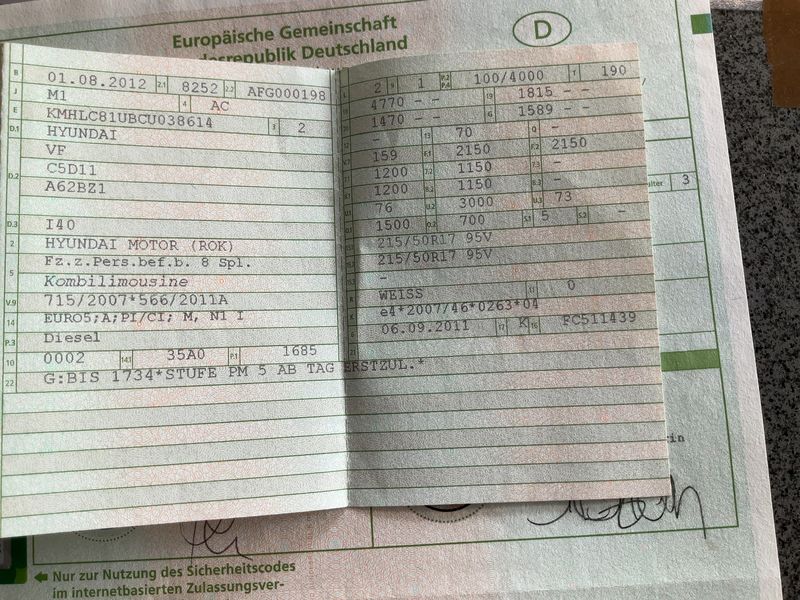 Europäische Gemeinschaft
desrepublik Deutschland
D
B 01.08.2012 2.1 8252 2.2 AFG000198
J M1 4 AC
E KMHLC81UBCU038614 3 2
D.1 HYUNDAI
VF
D.2 C5D11
A62BZ1
D.3 I40
2 HYUNDAI MOTOR (ROK)
5 Fz.z.Pers.bef.b. 8 Spl.
Kombilimousine
V.9 715/2007*566/2011A
14 EURO5;A;PI/CI; M, N1 I
P.3 Diesel
10 0002 14.1 35A0 P.1 1685
22 G:BIS 1734*STUFE PM 5 AB TAG ERSTZUL.*
L 2 9 1 P.2 P.4 100/4000 T 190
4770 - - 19 1815 - -
1470 - - G 1589 - -
- 13 70 Q -
159 F.1 2150 F.2 2150
1200 7.2 1150 7.3 -
1200 8.2 1150 8.3 -
U.1 76 U.2 3000 U.3 73
O.1 1500 O.2 700 S.1 5 S.2 -
215/50R17 95V
215/50R17 95V
-
R WEISS 11 0
K e4*2007/46*0263*04
6 06.09.2011 17 K 16 FC511439
alter 3
Nur zur Nutzung des Sicherheitscodes
im internetbasierten Zulassungsver-